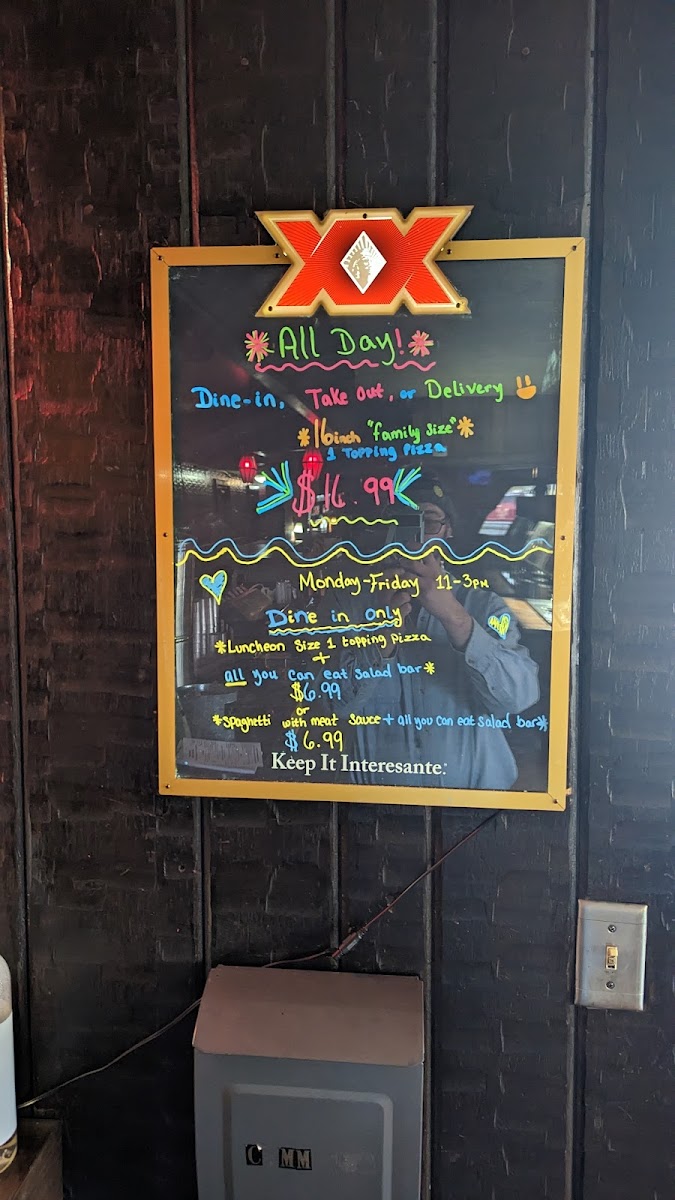 XX
*All Day!*
Dine-in, Take Out, or Delivery
*16 inch "family size"*
1 Topping Pizza
$16.99
Monday-Friday 11-3PM
Dine in only
*Luncheon Size 1 topping Pizza
+
all you can eat salad bar*
$6.99
or
*Spaghetti with meat sauce + all you can eat salad bar*
$6.99
Keep It Interesante.
C MM